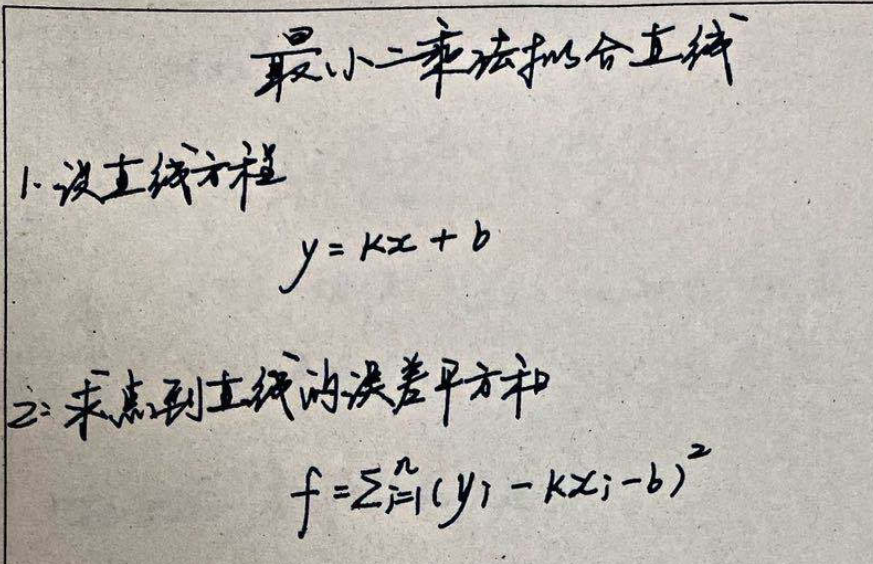 最小二乘法拟合直线
1. 设直线方程
y = kx + b
2: 求点到直线的误差平方和
f = ∑ⁿᵢ₌₁(yᵢ - kxᵢ - b)²